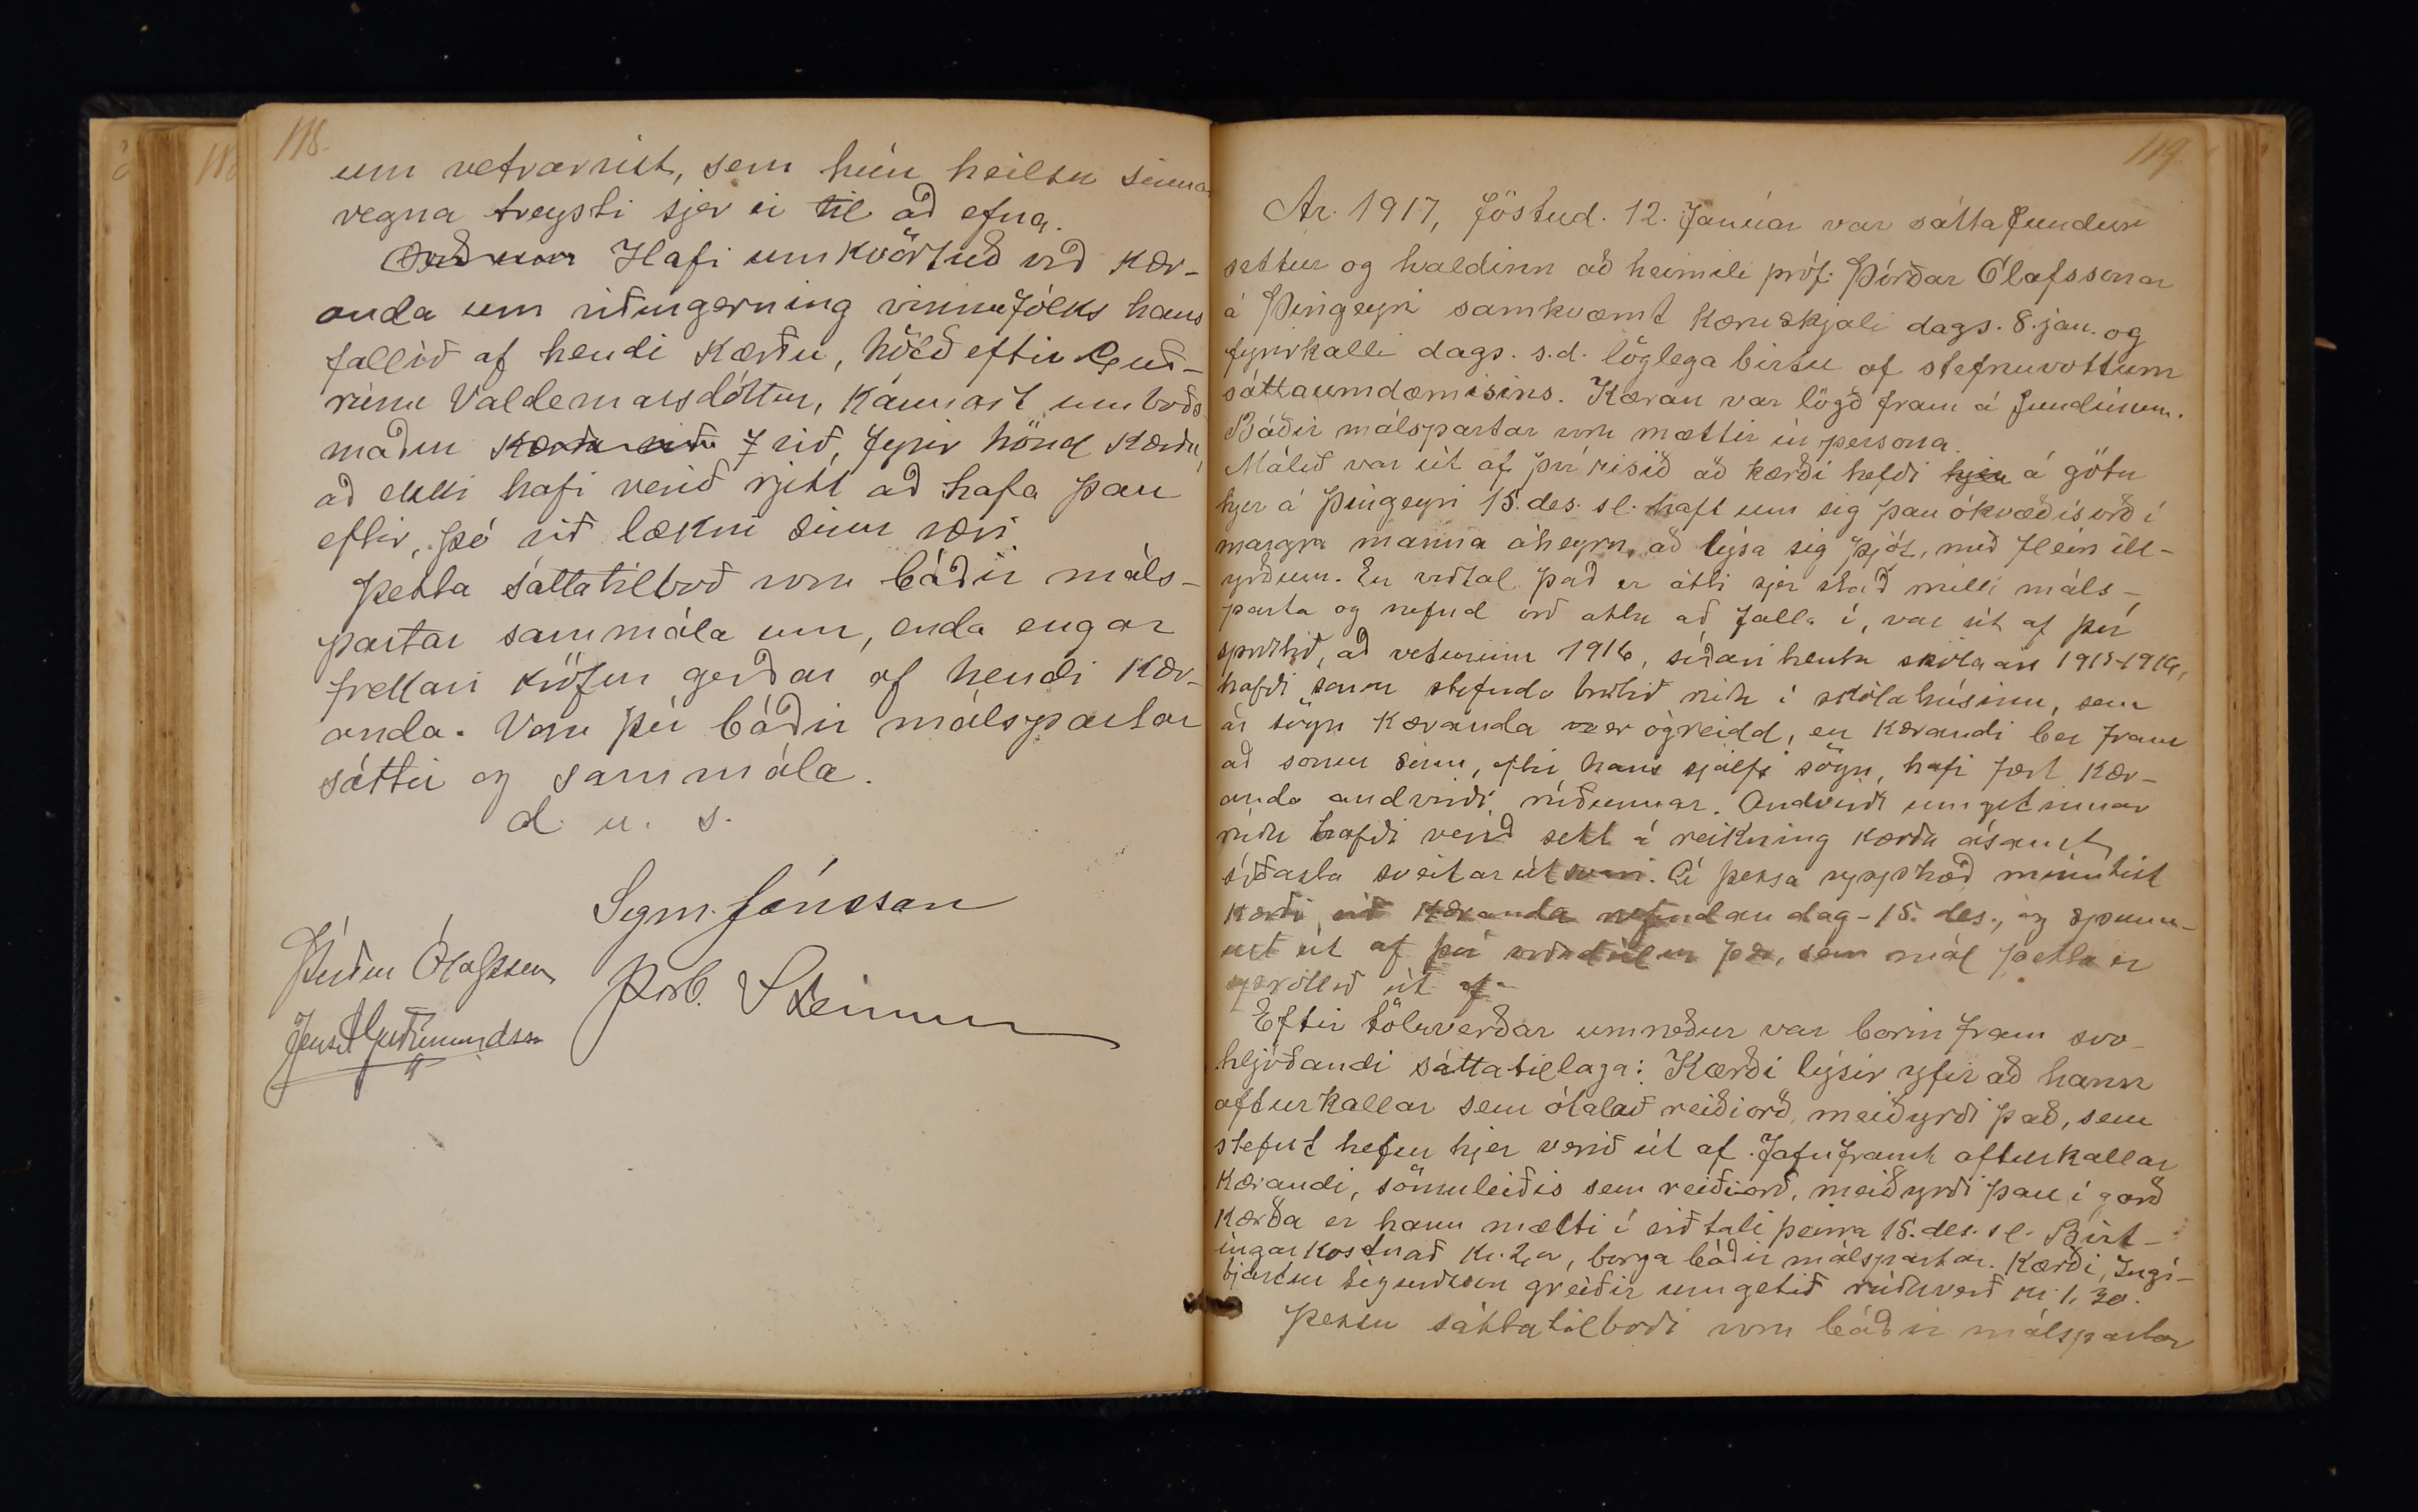 118.
um vetrarvist, sem hún heilsu sinnar
vegna treysti sjer ei til að efna.
Orð um Hafi umkvörtuð við kær-
anda um viðurgerning vinnufólks hans
fallið af hendi kærðu, höfð eftir Guð-
rúnu Valdemarsdóttur, kannast umboðs
maður kærðu við, fyrir hönd kærðu,
að ekki hafi verið rjett að hafa þau
eftir, þó við lækni sinn væri
Þetta sáttatilboð voru báðir máls-
partar sammála um, enda engar
frekari kröfur gerðar af hendi kær-
anda. Voru því báðir málspartar
sáttir og sammála.
d. u. s.
Sigm. Jónsson
Þórður Ólafsson
Þorb. Steinsson
Jens A Guðmundsson
119.
Ár. 1917, föstud. 12. Janúar var sáttafundur
settur og haldinn að heimili próf. Þórðar Ólafssonar
á Þingeyri samkvæmt kæruskjali dags. 8. jan. og
fyrirkalli dags. s.d. löglega birtu af stefnuvottum
sáttaumdæmisins. Kæran var lögð fram á fundinum.
Báðir málspartar voru mættir in persona.
Málið var út af því risið að kærði hefði hjer á götu
hjer á Þingeyri 15. des. sl. haft um sig þau ókvæðisorð í
margra manna áheyrn, að lýsa sig þjóf, með fleiri ill-
yrðum. En viðtal það er átti sjer stað milli máls-
parta og nefnd orð áttu að falla í, var út af því
sprottið, að veturinn 1916, síðari hluta skólaárs 1915-1916,
hafði sonur stefnda brotið rúðu í skólahúsinu, sem
ár sögn kæranda var er ógreidd, en kærandi ber fram
að sonur sinn, eftir hans sjálfs sögn, hafi fært kær-
anda andvirði rúðunnar. Andvirði umgetinnar
rúðu hafði verið sett á reikning kærða ásamt
síðasta sveitarútsvari. Á þessa upphæð minntist
kærði við kæranda nefndan dag - 15. des., og spunn-
ust út af því orðadeilur þær, sem mál þetta er
sprottið út af.
Eftir töluverðar umræður var borin fram svo-
hljóðandi sáttatillaga: Kærði lýsir yfir að hann
afturkallar sem ótalað reiðiorð, meiðyrði það, sem
stefnt hefur hjer verið út af. Jafnframt afturkallar
kærandi, sömuleiðis sem reiðiorð, meiðyrði þau í garð
kærða er hann mælti í viðtali þeirra 15. des. sl. Birt-
ingar kostnað kr. 2, borga báðir málspartar. Kærði, Ingi-
bjartur Sigurðsson greiðir umgetið rúðuverð kr. 1,30.
Þessu sáttatilboði voru báðir málspartar